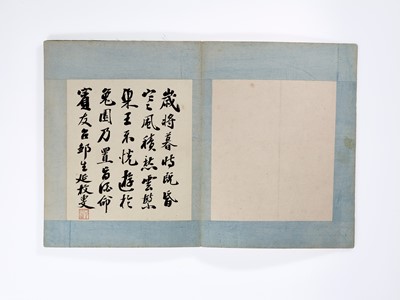 歲將暮時既昏
寒風積愁雲繁
梁王不悅遊於
兔園乃置旨酒命
賓友召鄒生延枚叟